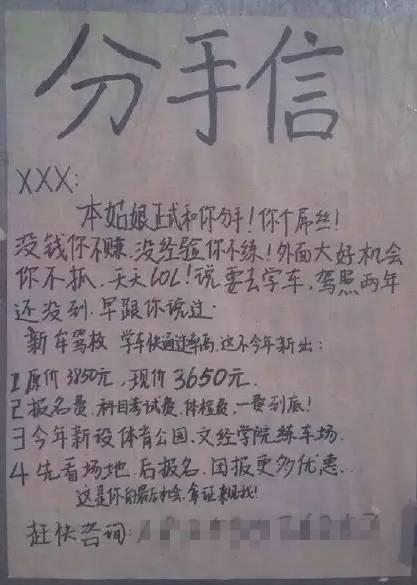 分手信
XXX:
本姑娘正式和你分手!你个屌丝!
没钱你不赚,没经验你不练!外面大好机会
你不抓,天天LOL!说要去学车,驾照两年
还没到,早跟你说过.
新车驾校 学车快通过率高,这不今年新出:
1原价3850元,现价3650元.
2报名费.科目考试费.体检费,一费到底!
3今年新设体育公园.文经学院练车场.
4先看场地.后报名.团报更多优惠...
这是你的最后机会.拿证来见我!
赶快咨询: